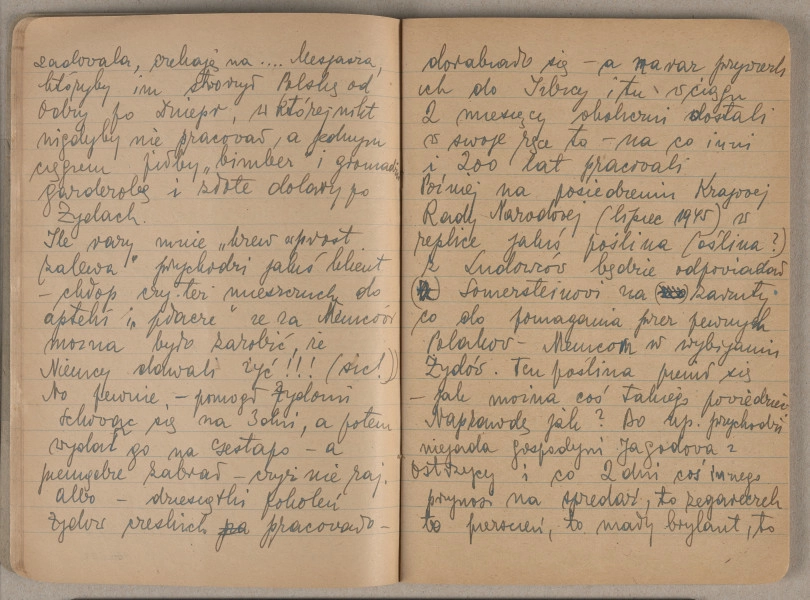 zadowala, czekają na .... Mesjasza,
któryby im stworzył Polskę od
Odry po Dniepr, w której nikt
nigdyby nie pracował, a jednym
ciągiem piłby „bimber" i gromadził
garderobę i złote dolary po
Żydach.
Ile razy mnie „krew wprost
zalewa" przychodzi jakiś klient
– chłop czy też mieszczuch do
apteki i „płacze" że za Niemców
można było zarobić, że
Niemcy dawali żyć!!! (sic!)
No pewnie – pomógł Żydowi
schować się na 3 dni, a potem
wydał go na Gestapo – a
pieniądze zabrał – czyż nie raj.
Albo – dziesiątki pokoleń
Żydów czeskich pracowało –
dorabiało się – a naraz przywieźli
ich do Izbicy i tu w ciągu
2 miesięcy okoliczni dostali
w swoje ręce to – na co inni
i 200 lat pracowali
Później na posiedzeniu Krajowej
Rady Narodowej (lipiec 1945) w
replice jakiś poślina (oślina?)
z Ludowców będzie odpowiadał
Somersteinowi na zarzuty
co do pomagania przez pewnych
Polaków – Niemcom w wybijaniu
Żydów. Ten poślina pienił się
– jak można coś takiego powiedzieć
Naprawdę jak? Do np. przychodzi
niejaka gospodyni Jagodowa z
Ostrzycy i co 2 dni coś innego
przynosi na sprzedaż, to zegareczek
to pierścień, to mały brylant, to